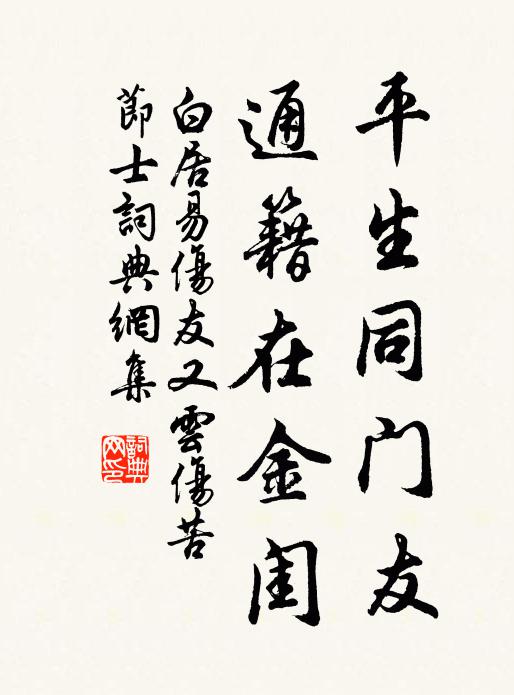 平生同门友
通籍在金闺
白居易傷友又雲傷苦
節士詞典網集
詞典网印